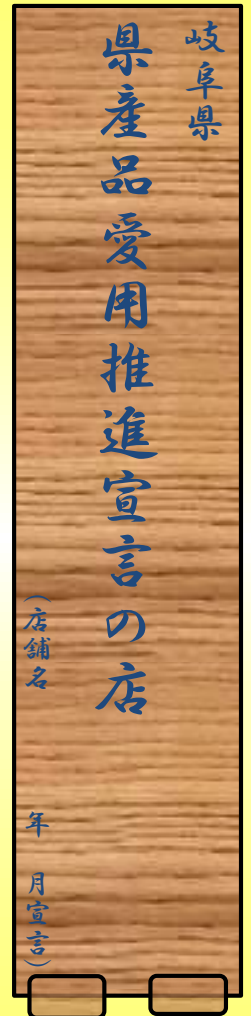 岐阜県
県産品愛用推進宣言の店
（店舗名　　　年　月宣言）